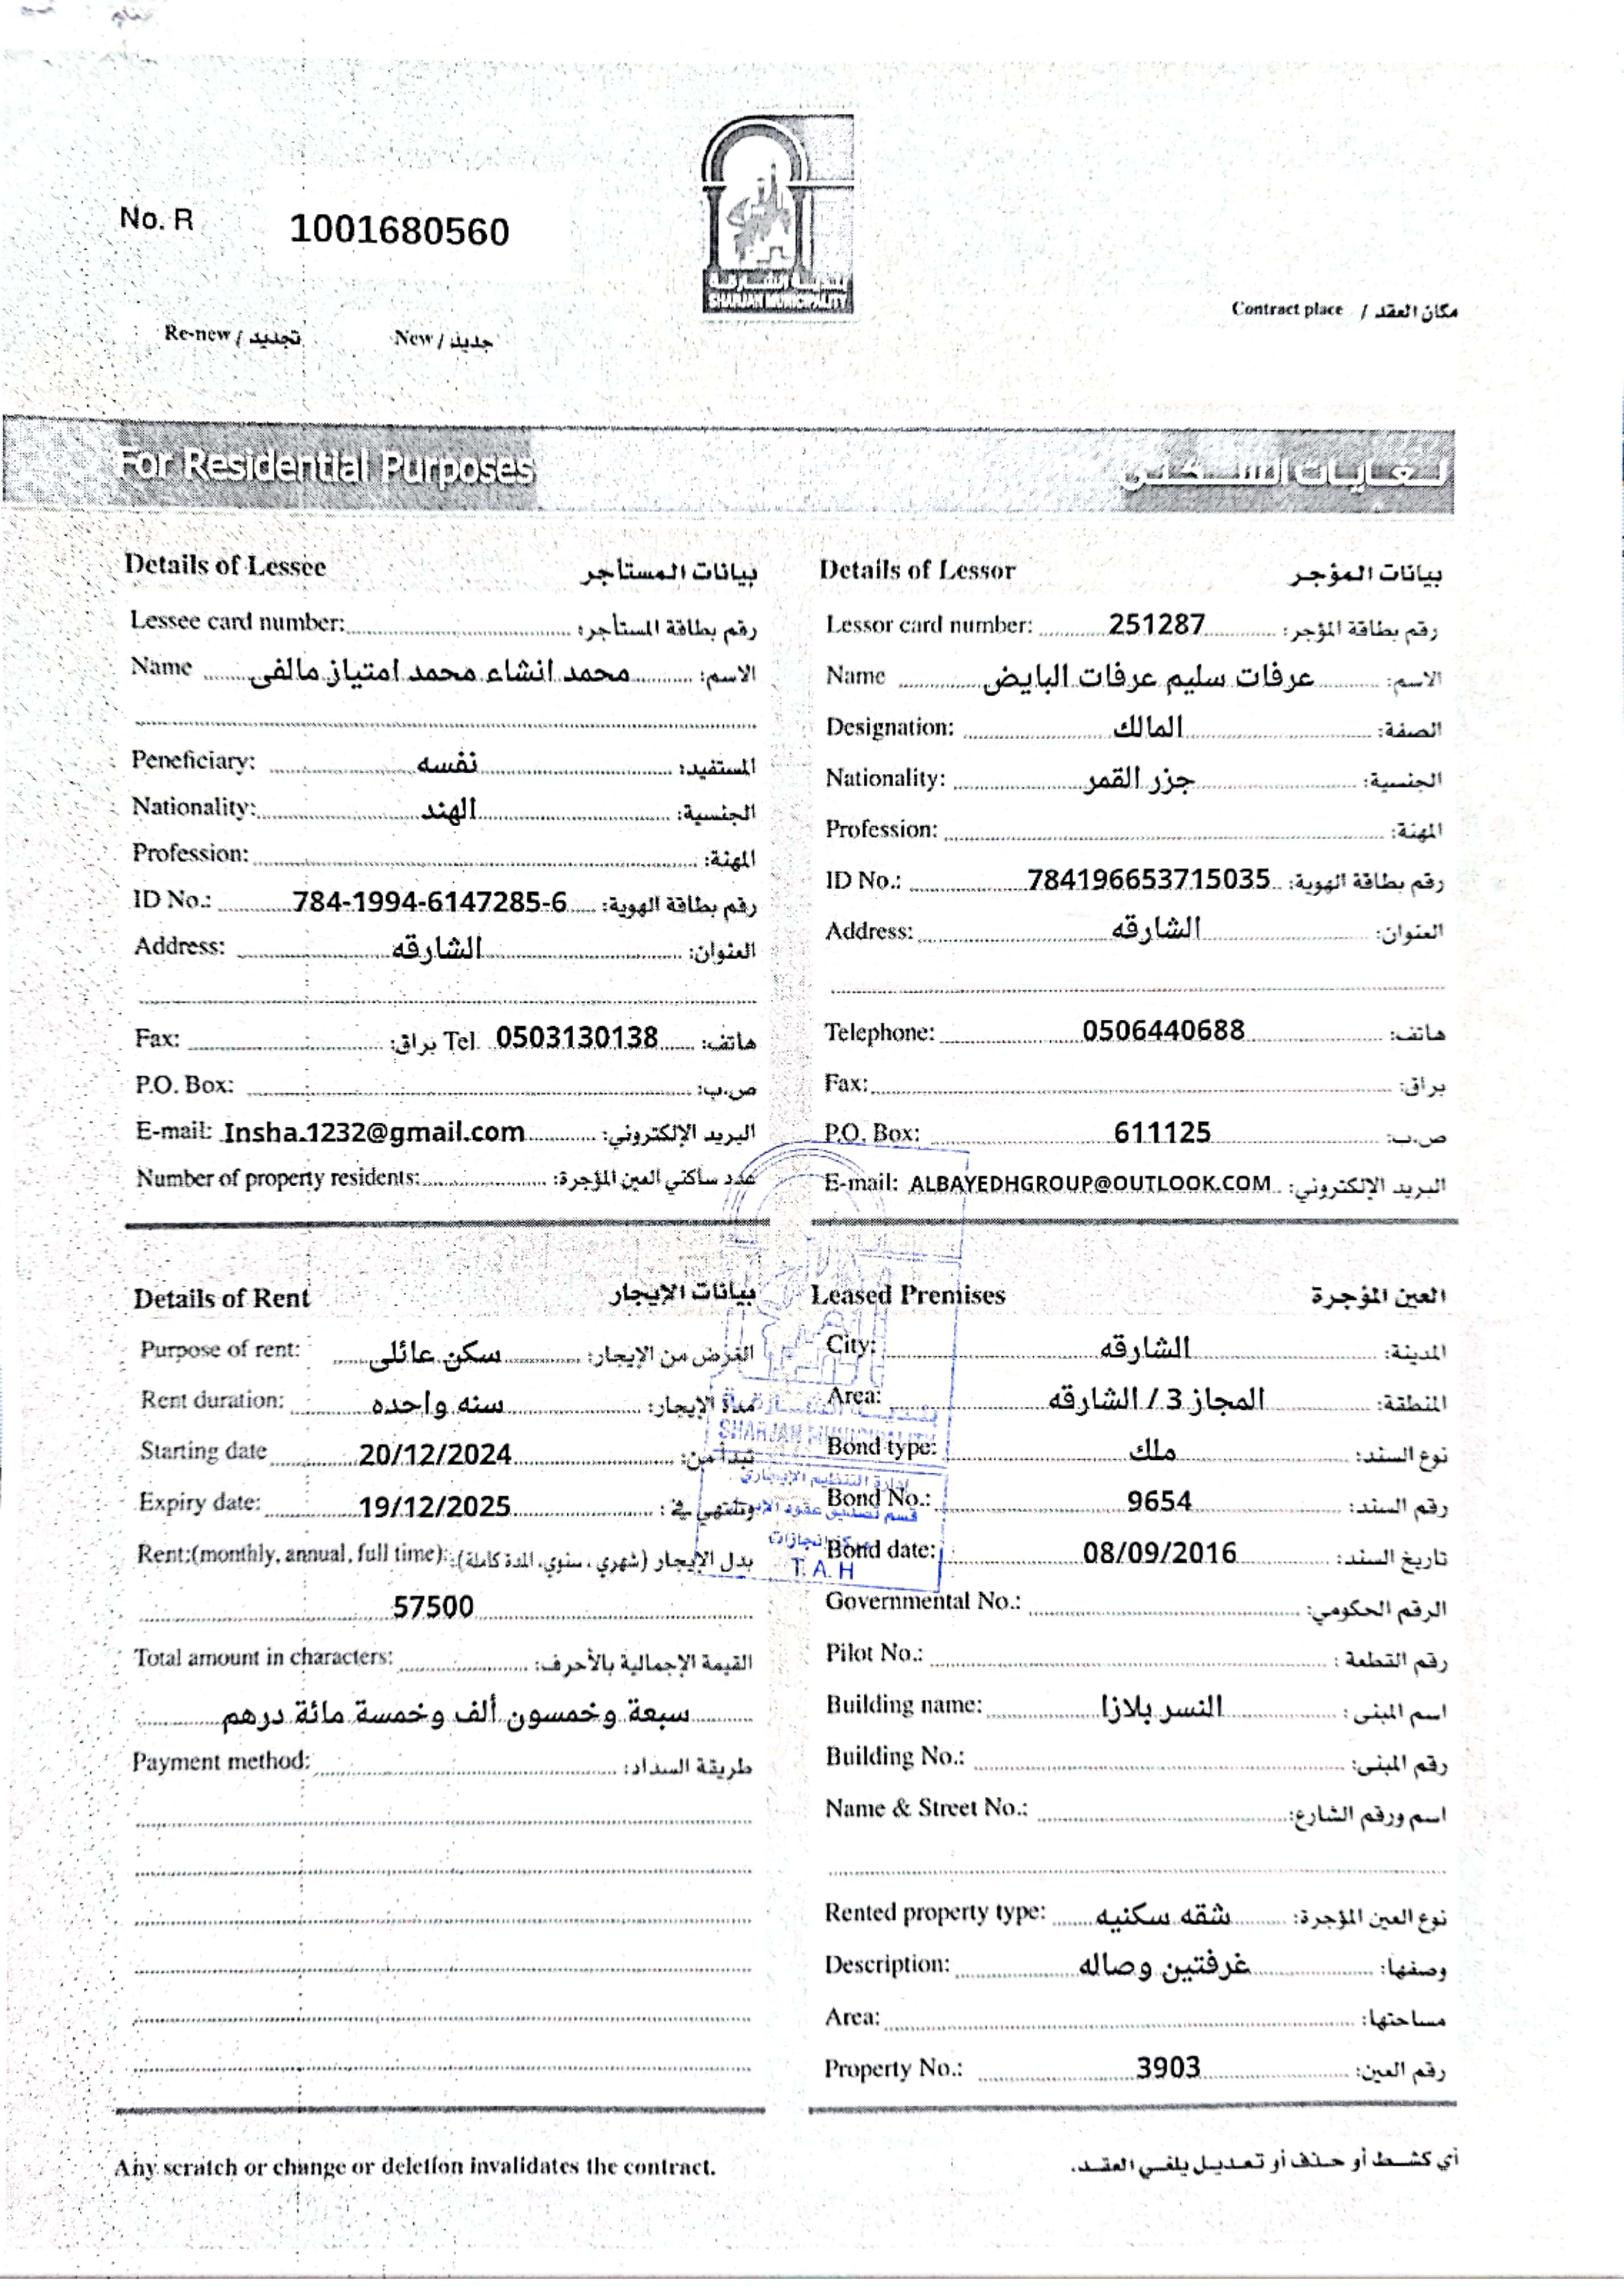 No. R 1001680560
بلدية الشارقة
SHARJAH MUNICIPALITY
Re-new / تجديد New / جديد
Contract place / مكان العقد
For Residential Purposes لغايات السكنى
Details of Lessee بيانات المستأجر
Lessee card number: رقم بطاقة المستأجر:
Name محمد انشاء محمد امتياز مالفى الاسم:
Peneficiary: نفسه المستفيد:
Nationality: الهند الجنسية:
Profession: المهنة:
ID No.: 784-1994-6147285-6 رقم بطاقة الهوية:
Address: الشارقه العنوان:
Fax: براق: Tel. 0503130138 هاتف:
P.O. Box: ص.ب:
E-mail: Insha.1232@gmail.com البريد الإلكتروني:
Number of property residents: عدد ساكني العين المؤجرة:
Details of Lessor بيانات المؤجر
Lessor card number: 251287 رقم بطاقة المؤجر:
Name عرفات سليم عرفات البايض الاسم:
Designation: المالك الصفة:
Nationality: جزر القمر الجنسية:
Profession: المهنة:
ID No.: 784196653715035 رقم بطاقة الهوية:
Address: الشارقه العنوان:
Telephone: 0506440688 هاتف:
Fax: براق:
P.O. Box: 611125 ص.ب:
E-mail: ALBAYEDHGROUP@OUTLOOK.COM البريد الإلكتروني:
Details of Rent بيانات الإيجار
Purpose of rent: سكن عائلى الغرض من الإيجار:
Rent duration: سنه واحده مدة الإيجار:
Starting date 20/12/2024 تبدأ من:
Expiry date: 19/12/2025 وتنتهي في:
Rent:(monthly, annual, full time): بدل الإيجار (شهري، سنوي، المدة كاملة):
57500
Total amount in characters: القيمة الإجمالية بالأحرف:
سبعة وخمسون ألف وخمسة مائة درهم
Payment method: طريقة السداد:
Leased Premises العين المؤجرة
City: الشارقه المدينة:
Area: المجاز 3 / الشارقه المنطقة:
Bond type: ملك نوع السند:
Bond No.: 9654 رقم السند:
Bond date: 08/09/2016 تاريخ السند:
Governmental No.: الرقم الحكومي:
Pilot No.: رقم القطعة:
Building name: النسر بلازا اسم المبنى:
Building No.: رقم المبنى:
Name & Street No.: اسم ورقم الشارع:
Rented property type: شقه سكنيه نوع العين المؤجرة:
Description: غرفتين وصاله وصفها:
Area: مساحتها:
Property No.: 3903 رقم العين:
SHARJAH MUNICIPALITY
إدارة التنظيم الإيجاري
قسم تصديق عقود
T.A.H
Any scratch or change or deletion invalidates the contract. أي كشط أو حذف أو تعديل يلغي العقد.